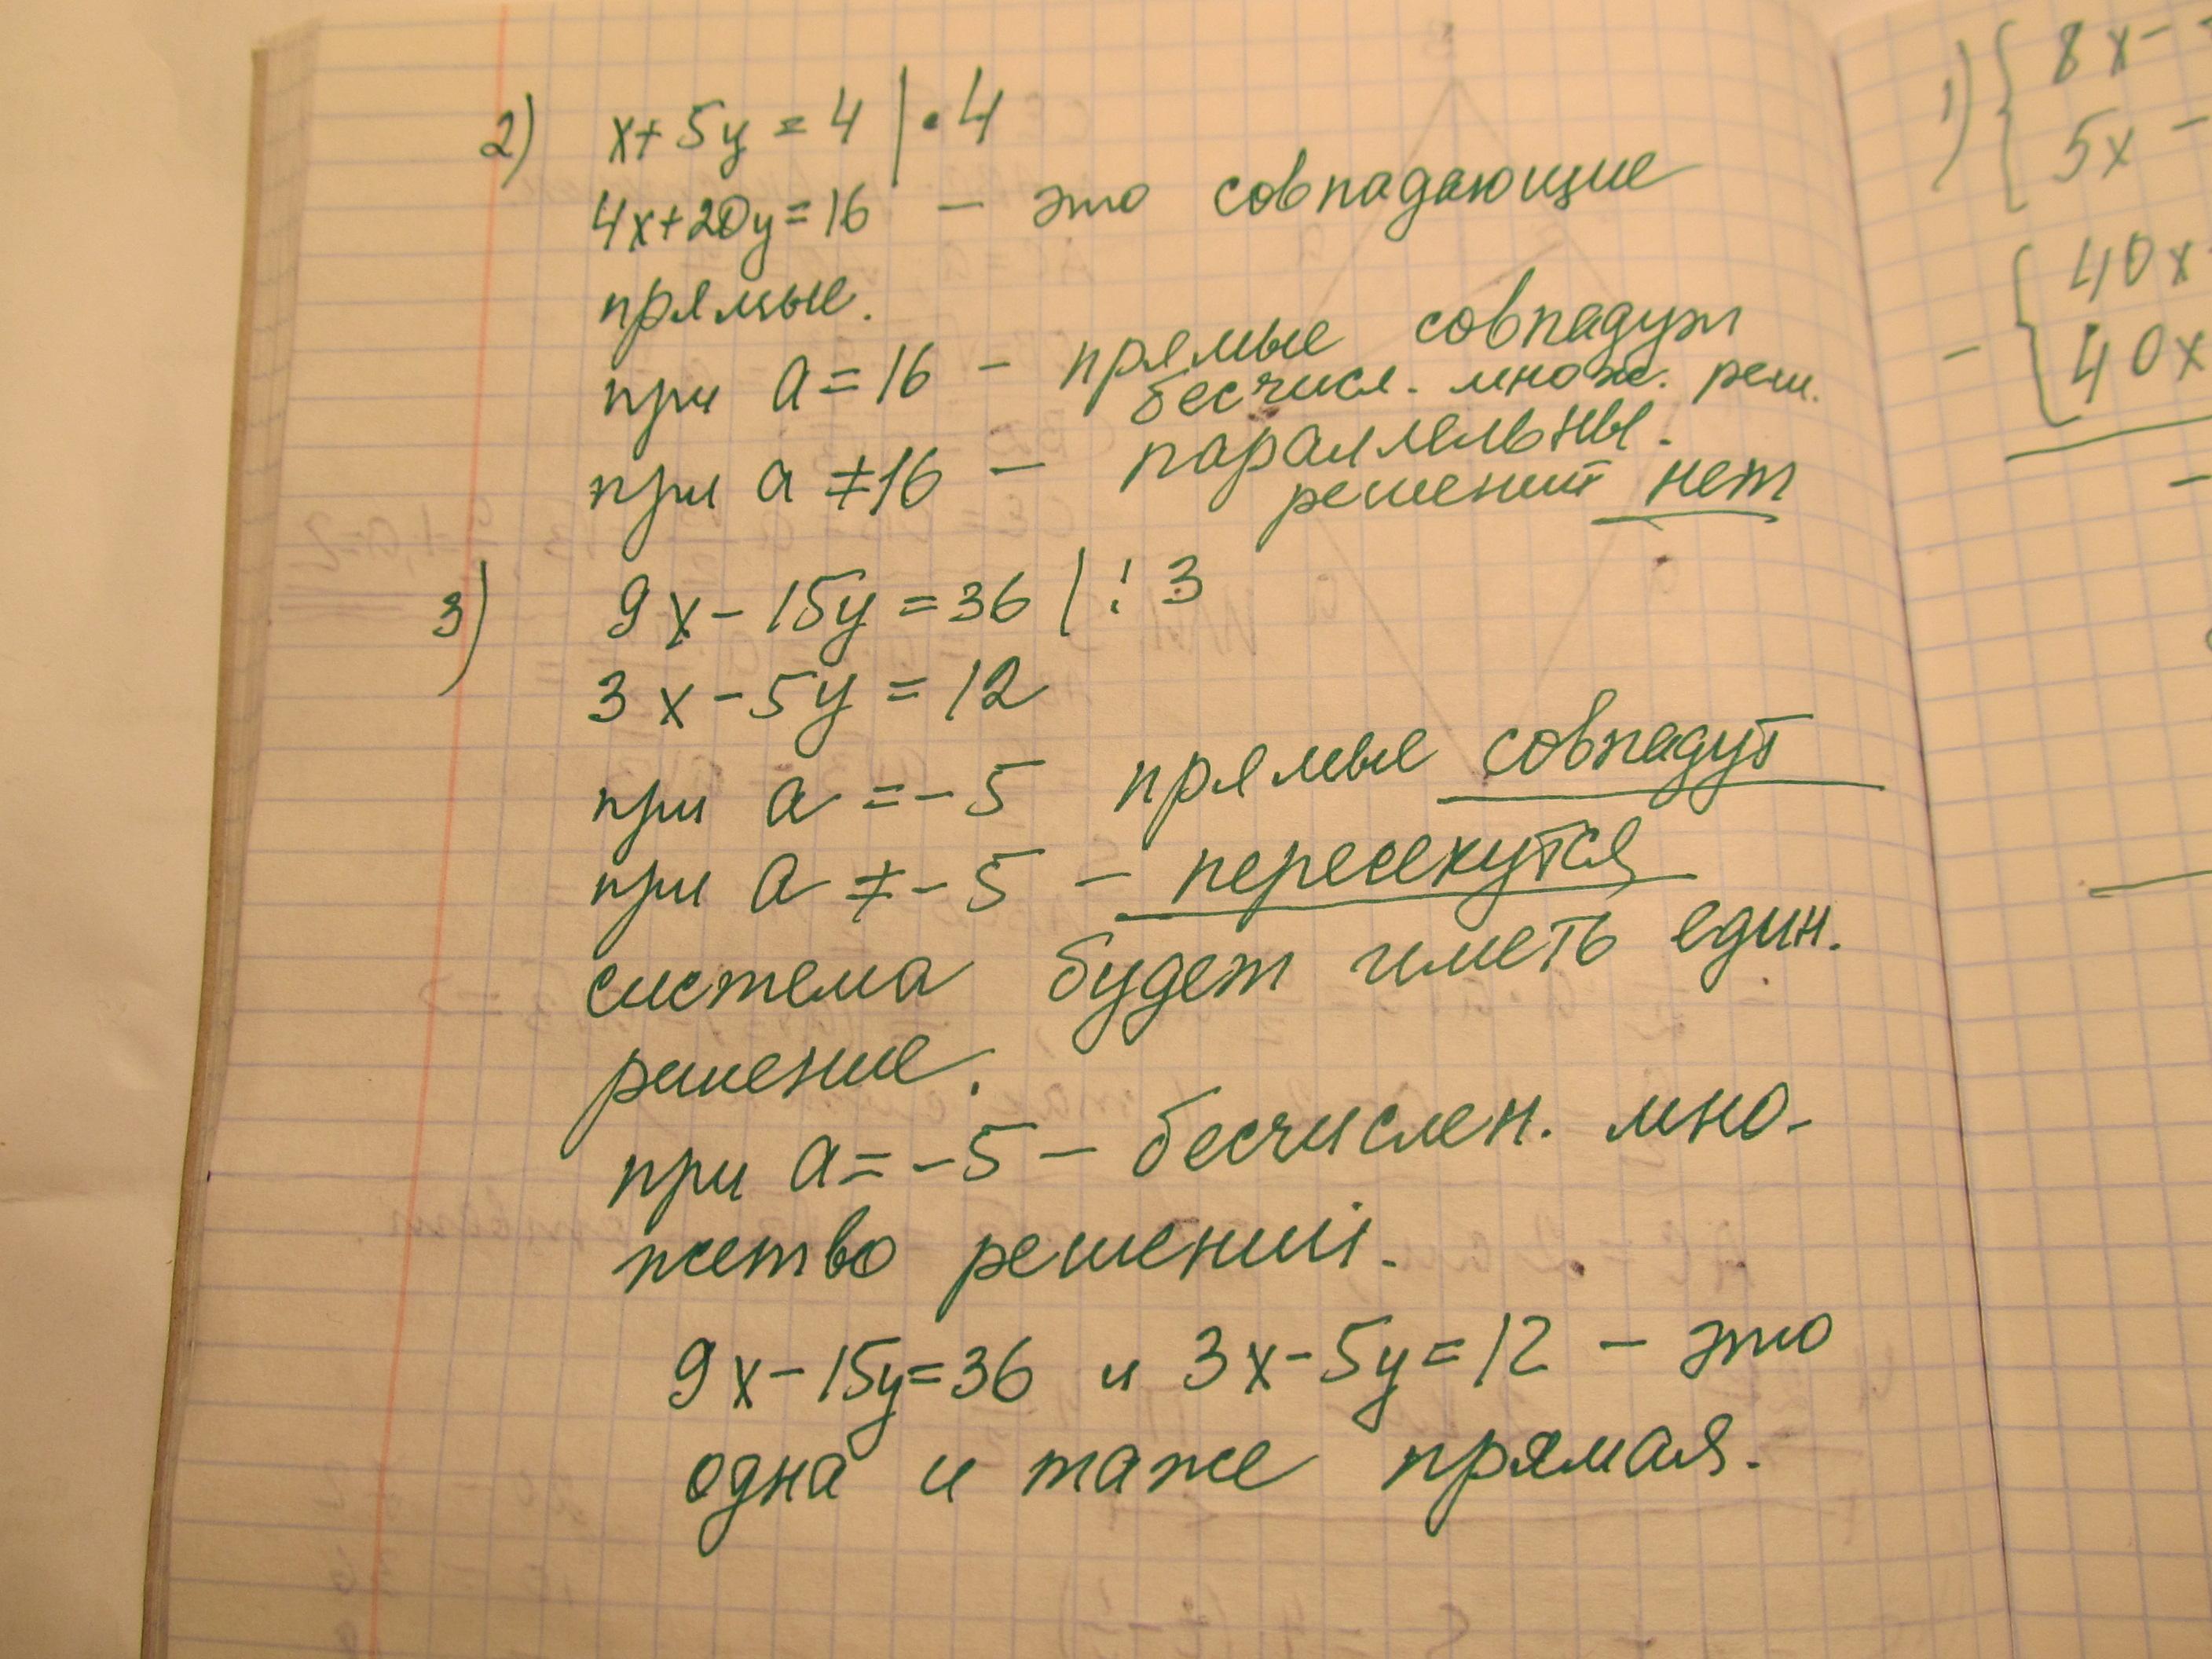 2) x+5y=4 | •4
4x+20y=16 – это совпадающие
прямые.
при a=16 – прямые совпадут
бесчисл. множ. реш.
при a≠16 – параллельны.
решений нет
3) 9x-15y=36 | : 3
3x-5y=12
при a=-5 прямые совпадут
при a≠-5 – пересекутся
система будет иметь един.
решение.
при a=-5 – бесчислен. мно-
жество решений.
9x-15y=36 и 3x-5y=12 – это
одна и таже прямая.
1) { 8x-
5x -
- { 40x
40x